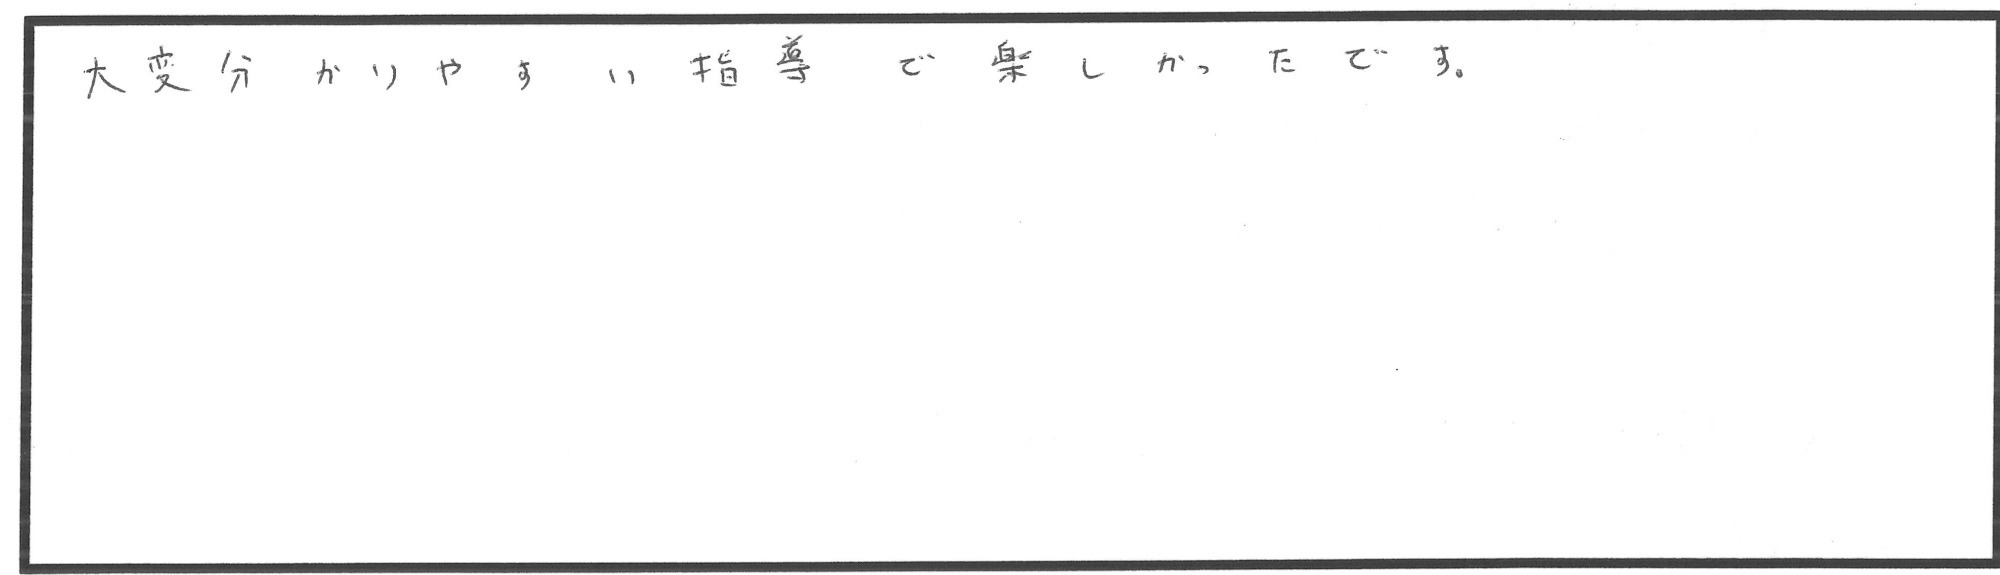 大変分かりやすい指導で楽しかったです。